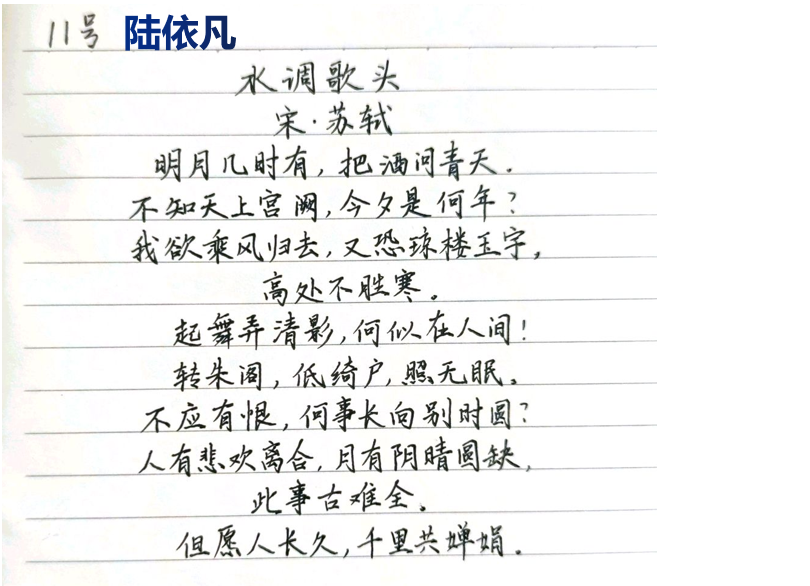 11号 陆依凡
水调歌头
宋·苏轼
明月几时有,把酒问青天.
不知天上宫阙,今夕是何年?
我欲乘风归去,又恐琼楼玉宇,
高处不胜寒。
起舞弄清影,何似在人间!
转朱阁,低绮户,照无眠。
不应有恨,何事长向别时圆?
人有悲欢离合,月有阴晴圆缺,
此事古难全。
但愿人长久,千里共婵娟.